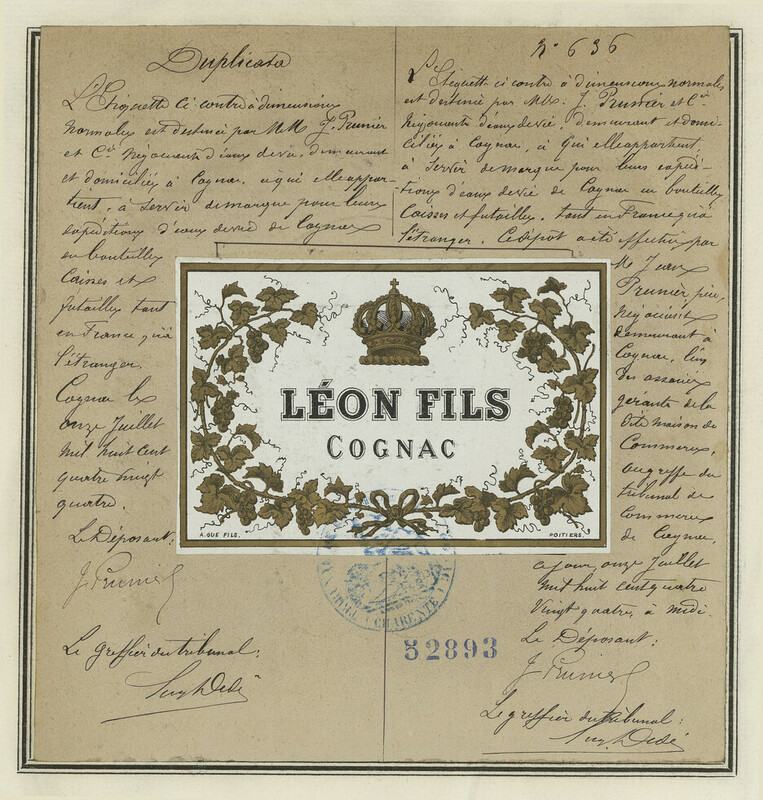 Duplicata
L'Etiquette ci contre à dimensions
normales est destinée par MM J. Prunier
et Cie Négociants d'eaux de vie, demeurant
et domiciliés à Cognac, à qui elle appar-
tient, à servir de marque pour leurs
expéditions d'eaux de vie de Cognac
en bouteilles
Caisses et
futailles tant
en France qu'à
l'étranger.
Cognac le
onze Juillet
mil huit cent
quatre vingt
quatre.
Le Déposant:
J. Prunier
Le greffier du tribunal:
N° 636
L'Etiquette ci contre à dimensions normales
est destinée par MM. J. Prunier et Cie
Négociants d'eaux de vie, demeurant et domi-
ciliés à Cognac, à qui elle appartient,
à servir de marque pour leurs expédi-
tions d'eaux de vie de Cognac en bouteilles
Caisses et futailles, tant en France qu'à
l'étranger. Ce dépôt a été effectué par
M Jean
Prunier père,
Négociant
demeurant à
Cognac, l'un
des associés
gérants de la
dite maison de
Commerce,
au greffe du
tribunal de
Commerce
de Cognac,
ce jour, onze Juillet
mil huit cent quatre
vingt quatre, à midi.
Le Déposant:
J. Prunier
Le greffier du tribunal:
LÉON FILS
COGNAC
A. GUE FILS.
POITIERS.
CHARENTE
52893